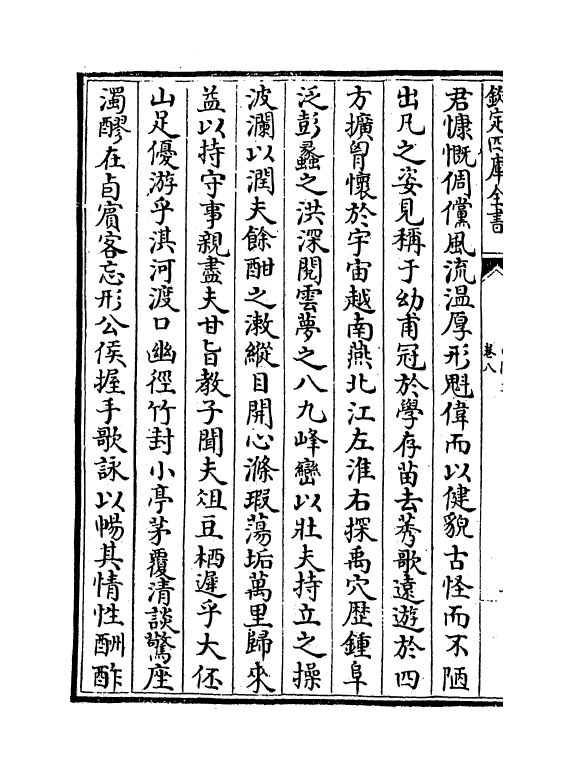 欽定四庫全書
卷八
君慷慨倜儻風流温厚形魁偉而以健貌古怪而不陋
出凡之姿見稱于幼甫冠於學存苗去莠歌遠遊於四
方擴胷懷於宇宙越南燕北江左淮右探禹穴歴鍾阜
泛彭蠡之洪深閱雲夢之八九峰巒以壯夫持立之操
波瀾以潤夫餘酣之漱縱目開心滌瑕蕩垢萬里歸來
益以持守事親盡夫甘旨教子聞夫俎豆栖遲乎大伾
山足優游乎淇河渡口幽徑竹封小亭茅覆清談驚座
濁醪在卣賓客忘形公侯握手歌詠以暢其情性酬酢